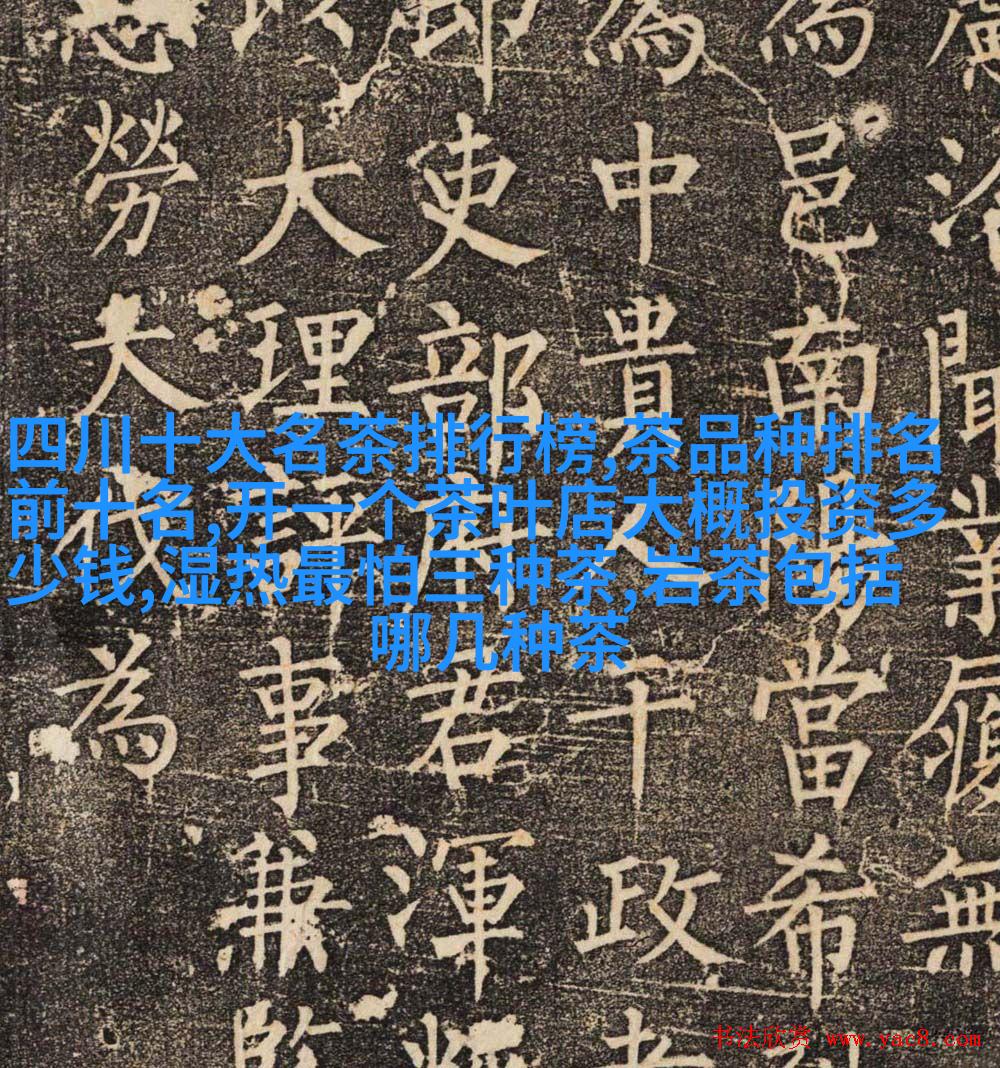 四川十大名茶排行榜,茶品种排名
前十名,开一个茶叶店大概投资多
少钱,湿热最怕三种茶,岩茶包括
哪几种茶
聞業履無
為邑南陽當希
為中貴人干政
郎吏部府君渾
以大理評事兼監
勞大為
书法欣赏 www.yac8.com